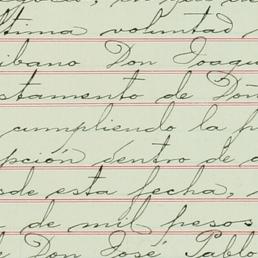 tima voluntad
ibano Don Joaqu
stamento de Doñ
cumpliendo la p
pción dentro de
sde esta fecha,
de mil pesos
Don José Pablo